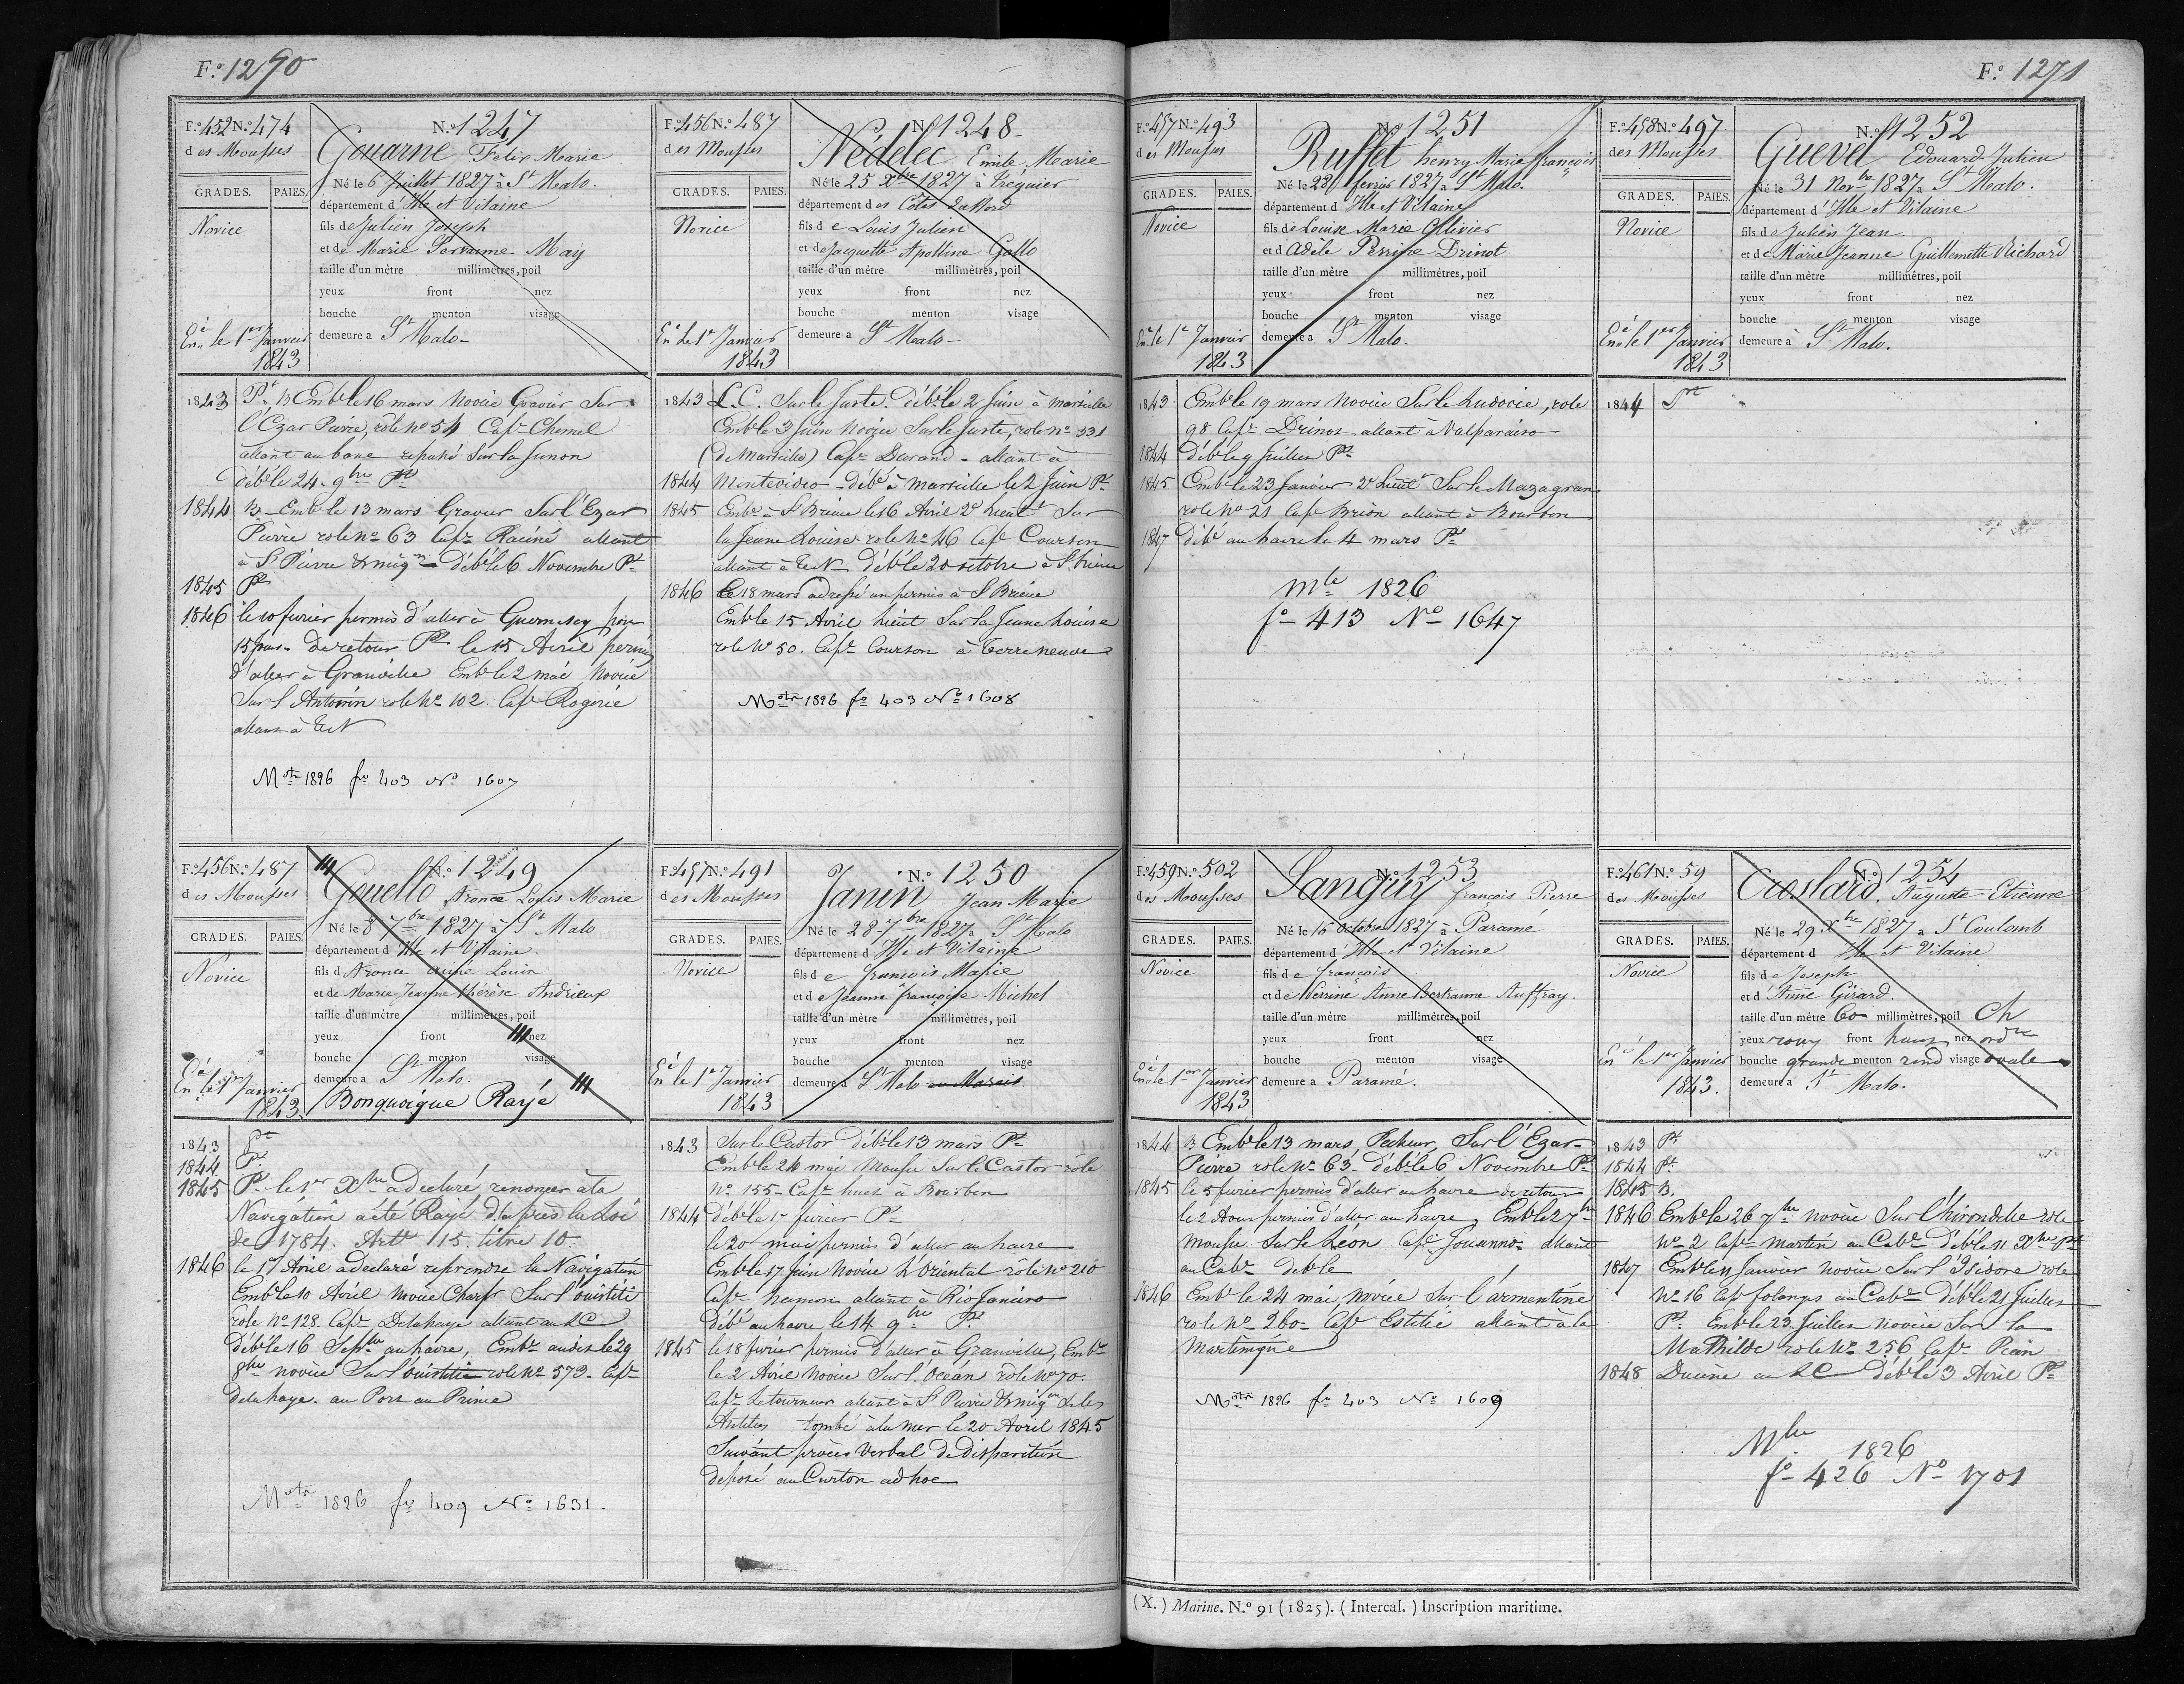 F.º 1270
F.º 452 N.º 474
des Mousses
N.º 1247
Gouarne Felix Marie
GRADES. PAIES.
Novice
Né le 6 Juillet 1827 à St Malo.
département d'Ille et Vilaine
fils de Julien Joseph
et de Marie Servanne May
taille d'un mètre millimètres, poil
yeux front nez
bouche menton visage
demeure a St Malo
En.é le 1er Janvier
1843
1843 Pt. B Emb. le 16 mars Novice Gravier Sur
l'Ezar Pierre, role No 54 Cape Chemel
allant au banc repassé Sur la Junon
déb. le 24. 9bre Pt
1844 B Emb. le 13 mars Gravier Sur l'Ezar
Pierre role No 63 Cape Raciné allant
à St Pierre & miqon déb. le 6 Novembre Pt
1845 Pt
1846 le 10 fevrier permis d'aller à Guernesey pour
15 jours. de retour Pt le 15 Avril permis
d'aller à Granville Emb. le 2 mai Novice
Sur l'Antonin role No 102 Cape Rogerie
allant à TeN
Mole 1826 fo 403 No 1607
F.º 456 N.º 487
des Mousses
N.º 1248
Nédelec Emile Marie
GRADES. PAIES.
Novice
Né le 25 Xbre 1827 à Tréguier
département des Côtes du Nord
fils de Louis Julien
et de Jacquette Apolline Gallo
taille d'un mètre millimètres, poil
yeux front nez
bouche menton visage
demeure a St Malo
En.é le 1er Janvier
1843
1843 L.C. Sur le Juste. déb. le 2 Juin à marseille
Emb. le 3 Juin Novice Sur le Juste, role No 531
(de Marseille) Cape Durand - allant à
1844 Montevideo - débé à marseille le 2 Juin Pt
1845 Embé à St Brieuc le 16 Avril 2e Lieutt Sur
la Jeune Louise role No 46 Cape Courson
allant à TeN déb. le 20 octobre à St Brieuc
1846 le 18 mars adressé un permis à St Brieuc
Emb. le 15 Avril Lieut Sur la Jeune Louise
role No 50. Cape Courson à Terreneuve
Mole 1826 fo 403 No 1608
F.º 456 N.º 487
des Mousses
N.º 1249
Gouello Aronce Louis Marie
GRADES. PAIES.
Novice
Né le 8 7bre 1827 à St Malo
département d'Ille et Vilaine.
fils d'Aronce Aimé Louis
et de Marie Jeanne Thérèse Andrieux
taille d'un mètre millimètres, poil
yeux front nez
bouche menton visage
demeure a St Malo.
Bonquoique Rayé
En.é le 1er Janvier
1843
1843 Pt
1844 Pt
1845 Pt le 1er Xbre a declaré renoncer à la
Navigation a été Rayé d'après la Loi
de 1784. Artle 15. titre 10.
1846 le 17 Avril a declaré reprendre la Navigation
Emb. le 10 Avril Novice Charpr Sur l'ouistiti
role No 128. Cape Delahaye allant au LC
déb. le 16 Septbre au havre, Embé audit le 29
8bre novice Sur l'ouistiti role No 573. Cape
Delahaye. au Port au Prince
Mole 1826 fo 409 No 1631.
F.º 457 N.º 491
des Mousses
N.º 1250
Janin Jean Marie
GRADES. PAIES.
Novice
Né le 28 7bre 1827 à St Malo
département d'Ille et Vilaine
fils de François Marie
et de Jeanne françoise Michel
taille d'un mètre millimètres, poil
yeux front nez
bouche menton visage
demeure a St Malo au Marais.
En.é le 1er Janvier
1843
1843 Sur le Castor déb. le 13 mars Pt
Emb. le 24 mai Mousse Sur le Castor role
No 155 - Cape huet à Bourbon
1844 déb. le 17 fevrier Pt
le 20 mai permis d'aller au havre
Emb. le 17 Juin Novice L'Oriental role No 210
Cape hamon allant à Rio Janeiro
débé au havre le 14 9bre Pt
1845 le 18 fevrier permis d'aller à Granville, Embé
le 2 Avril Novice Sur l'Océan role No 70.
Cape Letourneur allant à St Pierre & miqon & les
Antilles tombé à la mer le 20 Avril 1845
Suivant procès Verbal de disparition
deposé au Carton ad hoc
F.º 1271
F.º 457 N.º 493
des Mousses
N.º 1251
Ruffet henry Marie françois
GRADES. PAIES.
Novice
Né le 28 fevrier 1827 à St Malo.
département d'Ille et Vilaine
fils de Louise Marie Ollivier
et d'Adèle Perrine Drinot
taille d'un mètre millimètres, poil
yeux front nez
bouche menton visage
demeure a St Malo.
En.é le 1er Janvier
1843
1843 Emb. le 19 mars novice Sur le Ludovic, role
98 Cape Drinot allant à Valparaiso
1844 déb. le 9 Juillet Pt
1845 Emb. le 23 Janvier 2e Lieutt Sur le Mazagran
role No 21 Cape Brion allant à Bourbon
1847 débé au havre le 4 mars Pt
Mle 1826
fo 413 No 1647
F.º 458 N.º 497
des Mousses
N.º 1252
Guevel Edouard Julien
GRADES. PAIES.
Novice
Né le 31 Novbre 1827 à St Malo.
département d'Ille et Vilaine
fils de Julien Jean
et de Marie Jeanne Guillemette Richard
taille d'un mètre millimètres, poil
yeux front nez
bouche menton visage
demeure à St Malo.
En.é le 1er Janvier
1843
1844 Pt
F.º 459 N.º 502
des Mousses
N.º 1253
Languy françois Pierre
GRADES. PAIES.
Novice
Né le 16 Octobre 1827 à Paramé
département d'Ille et Vilaine
fils de françois
et de Perrine Anne Bertranne Auffray.
taille d'un mètre millimètres, poil
yeux front nez
bouche menton visage
demeure a Paramé.
En.é le 1er Janvier
1843
1844 B Emb. le 13 mars, Pecheur, Sur l'Ezar
Pierre role No 63 déb. le 6 Novembre Pt
1845 le 5 fevrier permis d'aller au havre de retour
le 2 Aout permis d'aller au havre, Emb. le 2 7bre
Mousse Sur le Leon Cape Jouanno allant
au Cabe deble
1846 Embé le 24 mai, novice Sur l'armentine
role No 260 Cape Estilie allant à la
Martinique
Mole 1826 fo 403 No 1609
F.º 461 N.º 59
des Mousses
N.º 1254
Croslard. Auguste Etienne
GRADES. PAIES.
Novice
Né le 29 Xbre 1827 à St Coulomb
département d'Ille et Vilaine
fils de Joseph
et d'Anne Girard.
taille d'un mètre 600 millimètres, poil Ch
yeux roux front haut nez ordre
bouche grande menton rond visage ovale
demeure a St Malo.
En.é le 1er Janvier
1843.
1843 Pt
1844 Pt
1845 B.
1846 Emb. le 26 7bre novice Sur l'hirondelle role
No 2 Cape Martin au Cabe déb. le 11 Xbre Pt
1847 Emb. le 11 Janvier novice Sur l'Isidore role
No 16 Cape folanges au Cabe déb. le 21 Juillet
Pt Emb. le 23 Juillet novice Sur la
Mathilde role No 256 Cape Pean
1848 Ducene au LC déb. le 3 Avril Pt
Mle 1826
fo 426 No 1701
(X.) Marine. N.º 91 (1825). (Intercal.) Inscription maritime.